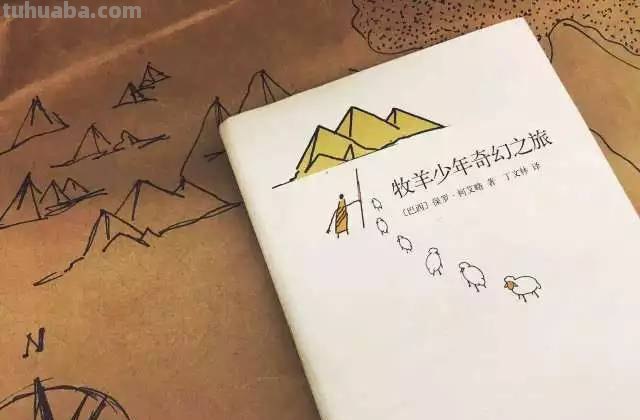 tuhuaba.com
牧羊少年奇幻之旅
〔巴西〕保罗·柯艾略 著 丁文林 译
N